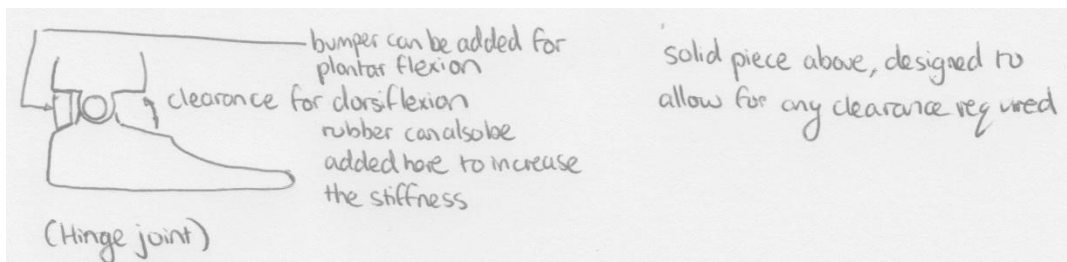 bumper can be added for
plantar flexion
clearance for dorsiflexion
rubber can also be
added here to increase
the stiffness
(Hinge joint)
solid piece above, designed to
allow for any clearance required